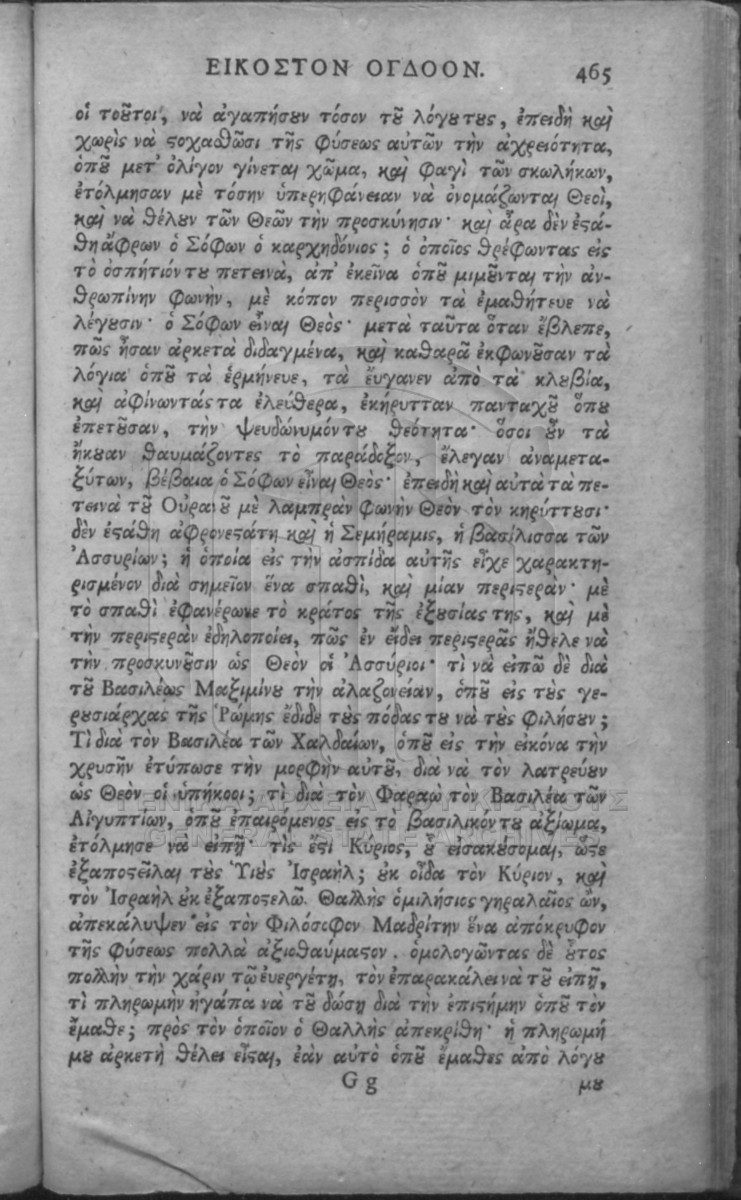 ΕΙΚΟΣΤΟΝ ΟΓΔΟΟΝ. 465
οἱ τοῦτοι, νὰ ἀγαπήσουν τόσον τοῦ λόγουτους, ἐπειδὴ καὶ
χωρὶς νὰ στοχασθῶσι τῆς φύσεως αὐτῶν τὴν ἀχρειότητα,
ὁποῦ μετ' ὀλίγον γίνεται χῶμα, καὶ φαγὶ τῶν σκωλήκων,
ἐτόλμησαν μὲ τόσην ὑπερηφάνειαν νὰ ὀνομάζωνται Θεοὶ,
καὶ νὰ θέλουν τῶν Θεῶν τὴν προσκύνησιν· καὶ ἆρα δὲν ἐστά-
θη ἄφρων ὁ Σόφων ὁ καρχηδόνιος; ὁ ὁποῖος θρέφωντας εἰς
τὸ ὀσπήτιόν του πετεινὰ, ἀπ' ἐκεῖνα ὁποῦ μιμοῦνται τὴν ἀν-
θρωπίνην φωνὴν, μὲ κόπον περισσὸν τὰ ἐμαθήτευε νὰ
λέγουσιν· ὁ Σόφων εἶναι Θεὸς· μετὰ ταῦτα ὅταν ἔβλεπε,
πῶς ἦσαν ἀρκετὰ διδαγμένα, καὶ καθαρὰ ἐκφωνοῦσαν τὰ
λόγια ὁποῦ τὰ ἑρμήνευε, τὰ εὔγανεν ἀπὸ τὰ κλουβία,
καὶ ἀφίνωντάς τα ἐλεύθερα, ἐκήρυτταν πανταχοῦ ὅπου
ἐπετοῦσαν, τὴν ψευδώνυμόν του θεότητα· ὅσοι οὖν τὰ
ἤκουαν θαυμάζοντες τὸ παράδοξον, ἔλεγαν ἀναμετα-
ξύτων, βέβαια ὁ Σόφων εἶναι Θεὸς· ἐπειδὴ καὶ αὐτὰ τὰ πε-
τεινὰ τοῦ Οὐρανοῦ μὲ λαμπρὰν φωνὴν Θεὸν τὸν κηρύττουσι·
δὲν ἐστάθη ἀφρονεστάτη καὶ ἡ Σεμήραμις, ἡ βασίλισσα τῶν
Ἀσσυρίων; ἡ ὁποία εἰς τὴν ἀσπίδα αὐτῆς εἶχε χαρακτη-
ρισμένον διὰ σημεῖον ἕνα σπαθὶ, καὶ μίαν περιστερὰν· μὲ
τὸ σπαθὶ ἐφανέρωνε τὸ κράτος τῆς ἐξουσίας της, καὶ μὲ
τὴν περιστερὰν ἐδηλοποίει, πῶς ἐν εἴδει περιστερᾶς ἤθελε νὰ
τὴν προσκυνοῦσιν ὡς Θεὸν οἱ Ἀσσύριοι· τὶ νὰ εἰπῶ δὲ διὰ
τοῦ Βασιλέως Μαξιμίνου τὴν ἀλαζονείαν, ὁποῦ εἰς τοὺς γε-
ρουσιάρχας τῆς Ῥώμης ἔδιδε τοὺς πόδας του νὰ τοὺς φιλήσουν;
Τὶ διὰ τὸν Βασιλέα τῶν Χαλδαίων, ὁποῦ εἰς τὴν εἰκόνα τὴν
χρυσῆν ἐτύπωσε τὴν μορφὴν αὐτοῦ, διὰ νὰ τὸν λατρεύουν
ὡς Θεὸν οἱ ὑπήκοοι; τὶ διὰ τὸν Φαραὼ τὸν Βασιλέα τῶν
Αἰγυπτίων, ὁποῦ ἐπαιρόμενος εἰς τὸ βασιλικόν του ἀξίωμα,
ἐτόλμησε νὰ εἰπῇ· τὶς ἔστι Κύριος, οὗ εἰσακούσομαι, ὥστε
ἐξαποστεῖλαι τοὺς Ὑιοὺς Ἰσραήλ; οὐκ οἶδα τὸν Κύριον, καὶ
τὸν Ἰσραὴλ οὐκ ἐξαποστελῶ. Θαλλῆς ὁμιλήσιος γηραλαῖος ὢν,
ἀπεκάλυψεν εἰς τὸν Φιλόσοφον Μαδρίτην ἕνα ἀπόκρυφον
τῆς φύσεως πολλὰ ἀξιοθαύμαστον. ὁμολογῶντας δὲ οὗτος
πολλὴν τὴν χάριν τῷ ἐυεργέτῃ, τὸν ἐπαρακάλει νὰ τοῦ εἰπῇ,
τὶ πληρωμὴν ἠγάπα νὰ τοῦ δώσῃ διὰ τὴν ἐπιστήμην ὁποῦ τὸν
ἔμαθε; πρὸς τὸν ὁποῖον ὁ Θαλλῆς ἀπεκρίθη· ἡ πληρωμή
μου ἀρκετὴ θέλει εἶσται, ἐὰν αὐτὸ ὁποῦ ἔμαθες ἀπὸ λόγου
G g μου
ΓΕΝΙΚΑ ΑΡΧΕΙΑ ΤΟΥ ΚΡΑΤΟΥΣ
GENERAL STATE ARCHIVES